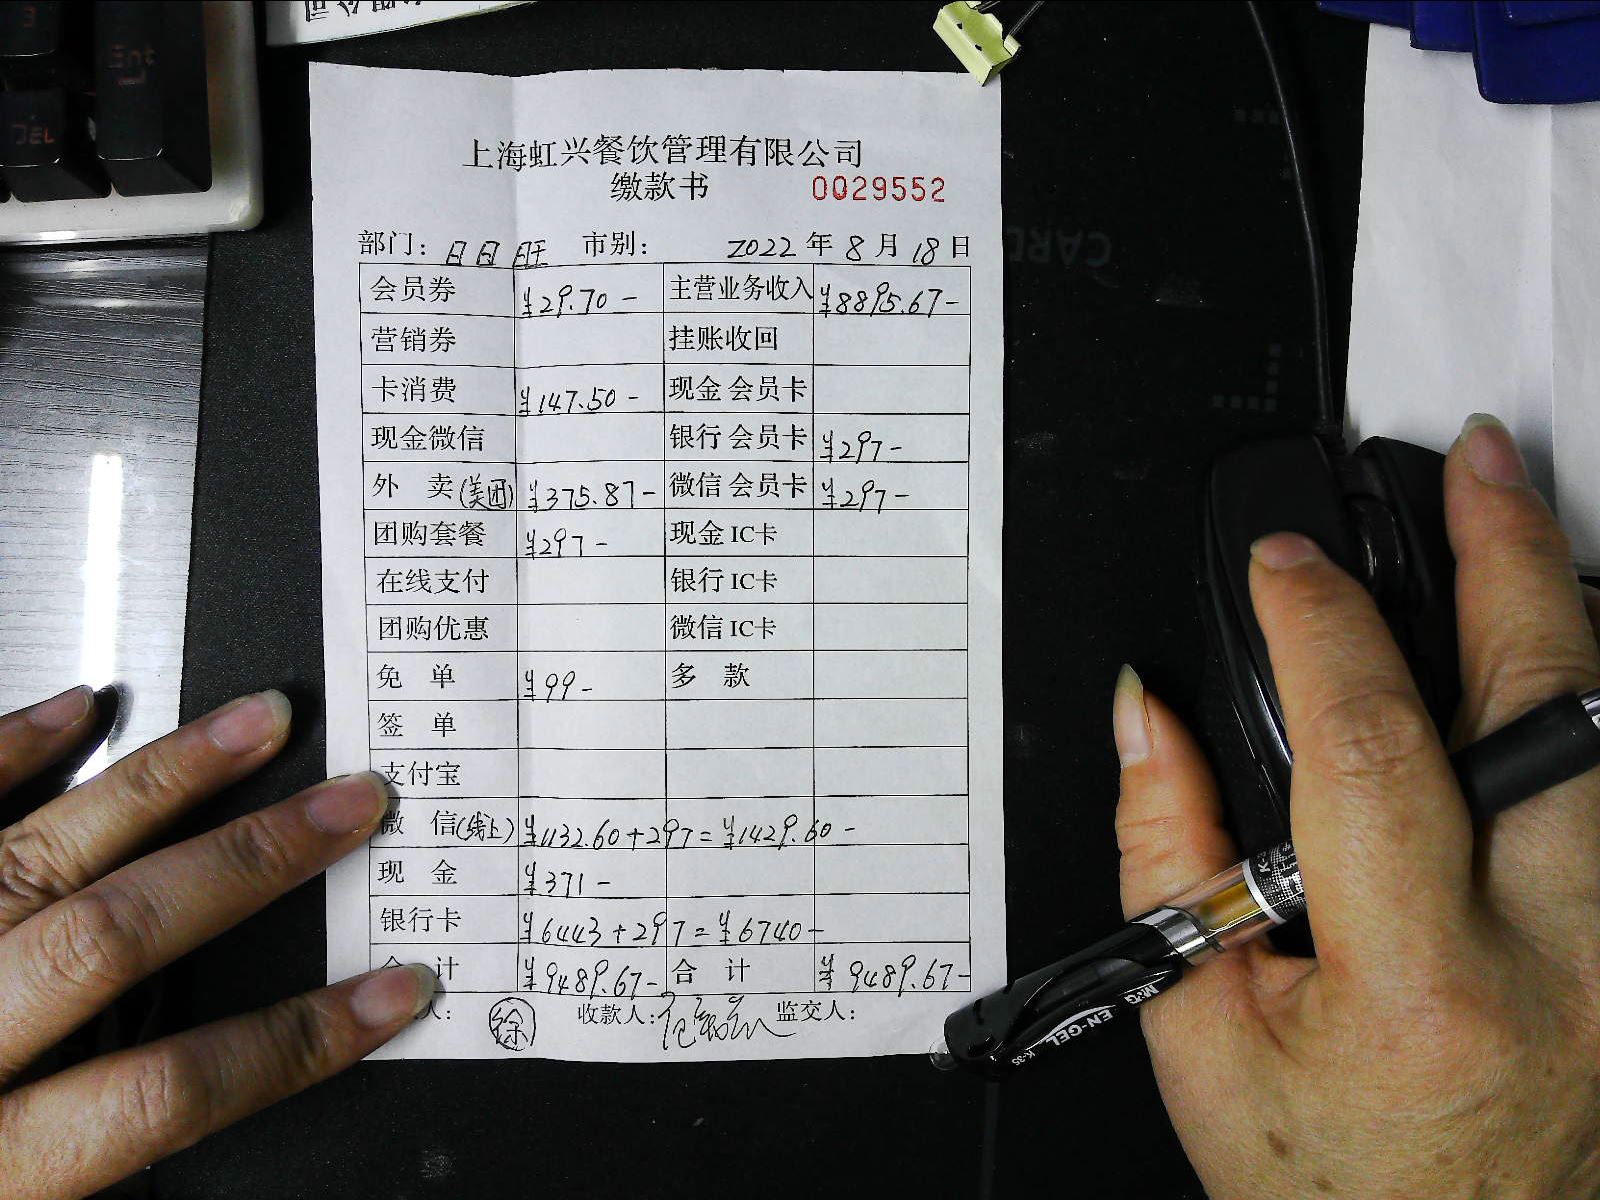 Ent
DEL
上海虹兴餐饮管理有限公司
缴款书 0029552
部门: 日日旺 市别: 2022 年 8 月 18 日
会员券 ¥29.70- 主营业务收入 ¥8895.67-
营销券 挂账收回
卡消费 ¥147.50- 现金 会员卡
现金微信 银行 会员卡 ¥297-
外 卖(美团) ¥375.87- 微信 会员卡 ¥297-
团购套餐 ¥297- 现金 IC卡
在线支付 银行 IC卡
团购优惠 微信 IC卡
免 单 ¥99- 多 款
签 单
支付宝
微 信(线上) ¥1132.60+297=¥1429.60-
现 金 ¥371-
银行卡 ¥6443+297=¥6740-
合 计 ¥9489.67- 合 计 ¥9489.67-
人: 徐 收款人: 监交人:
M&G
EN-GEL
K-35